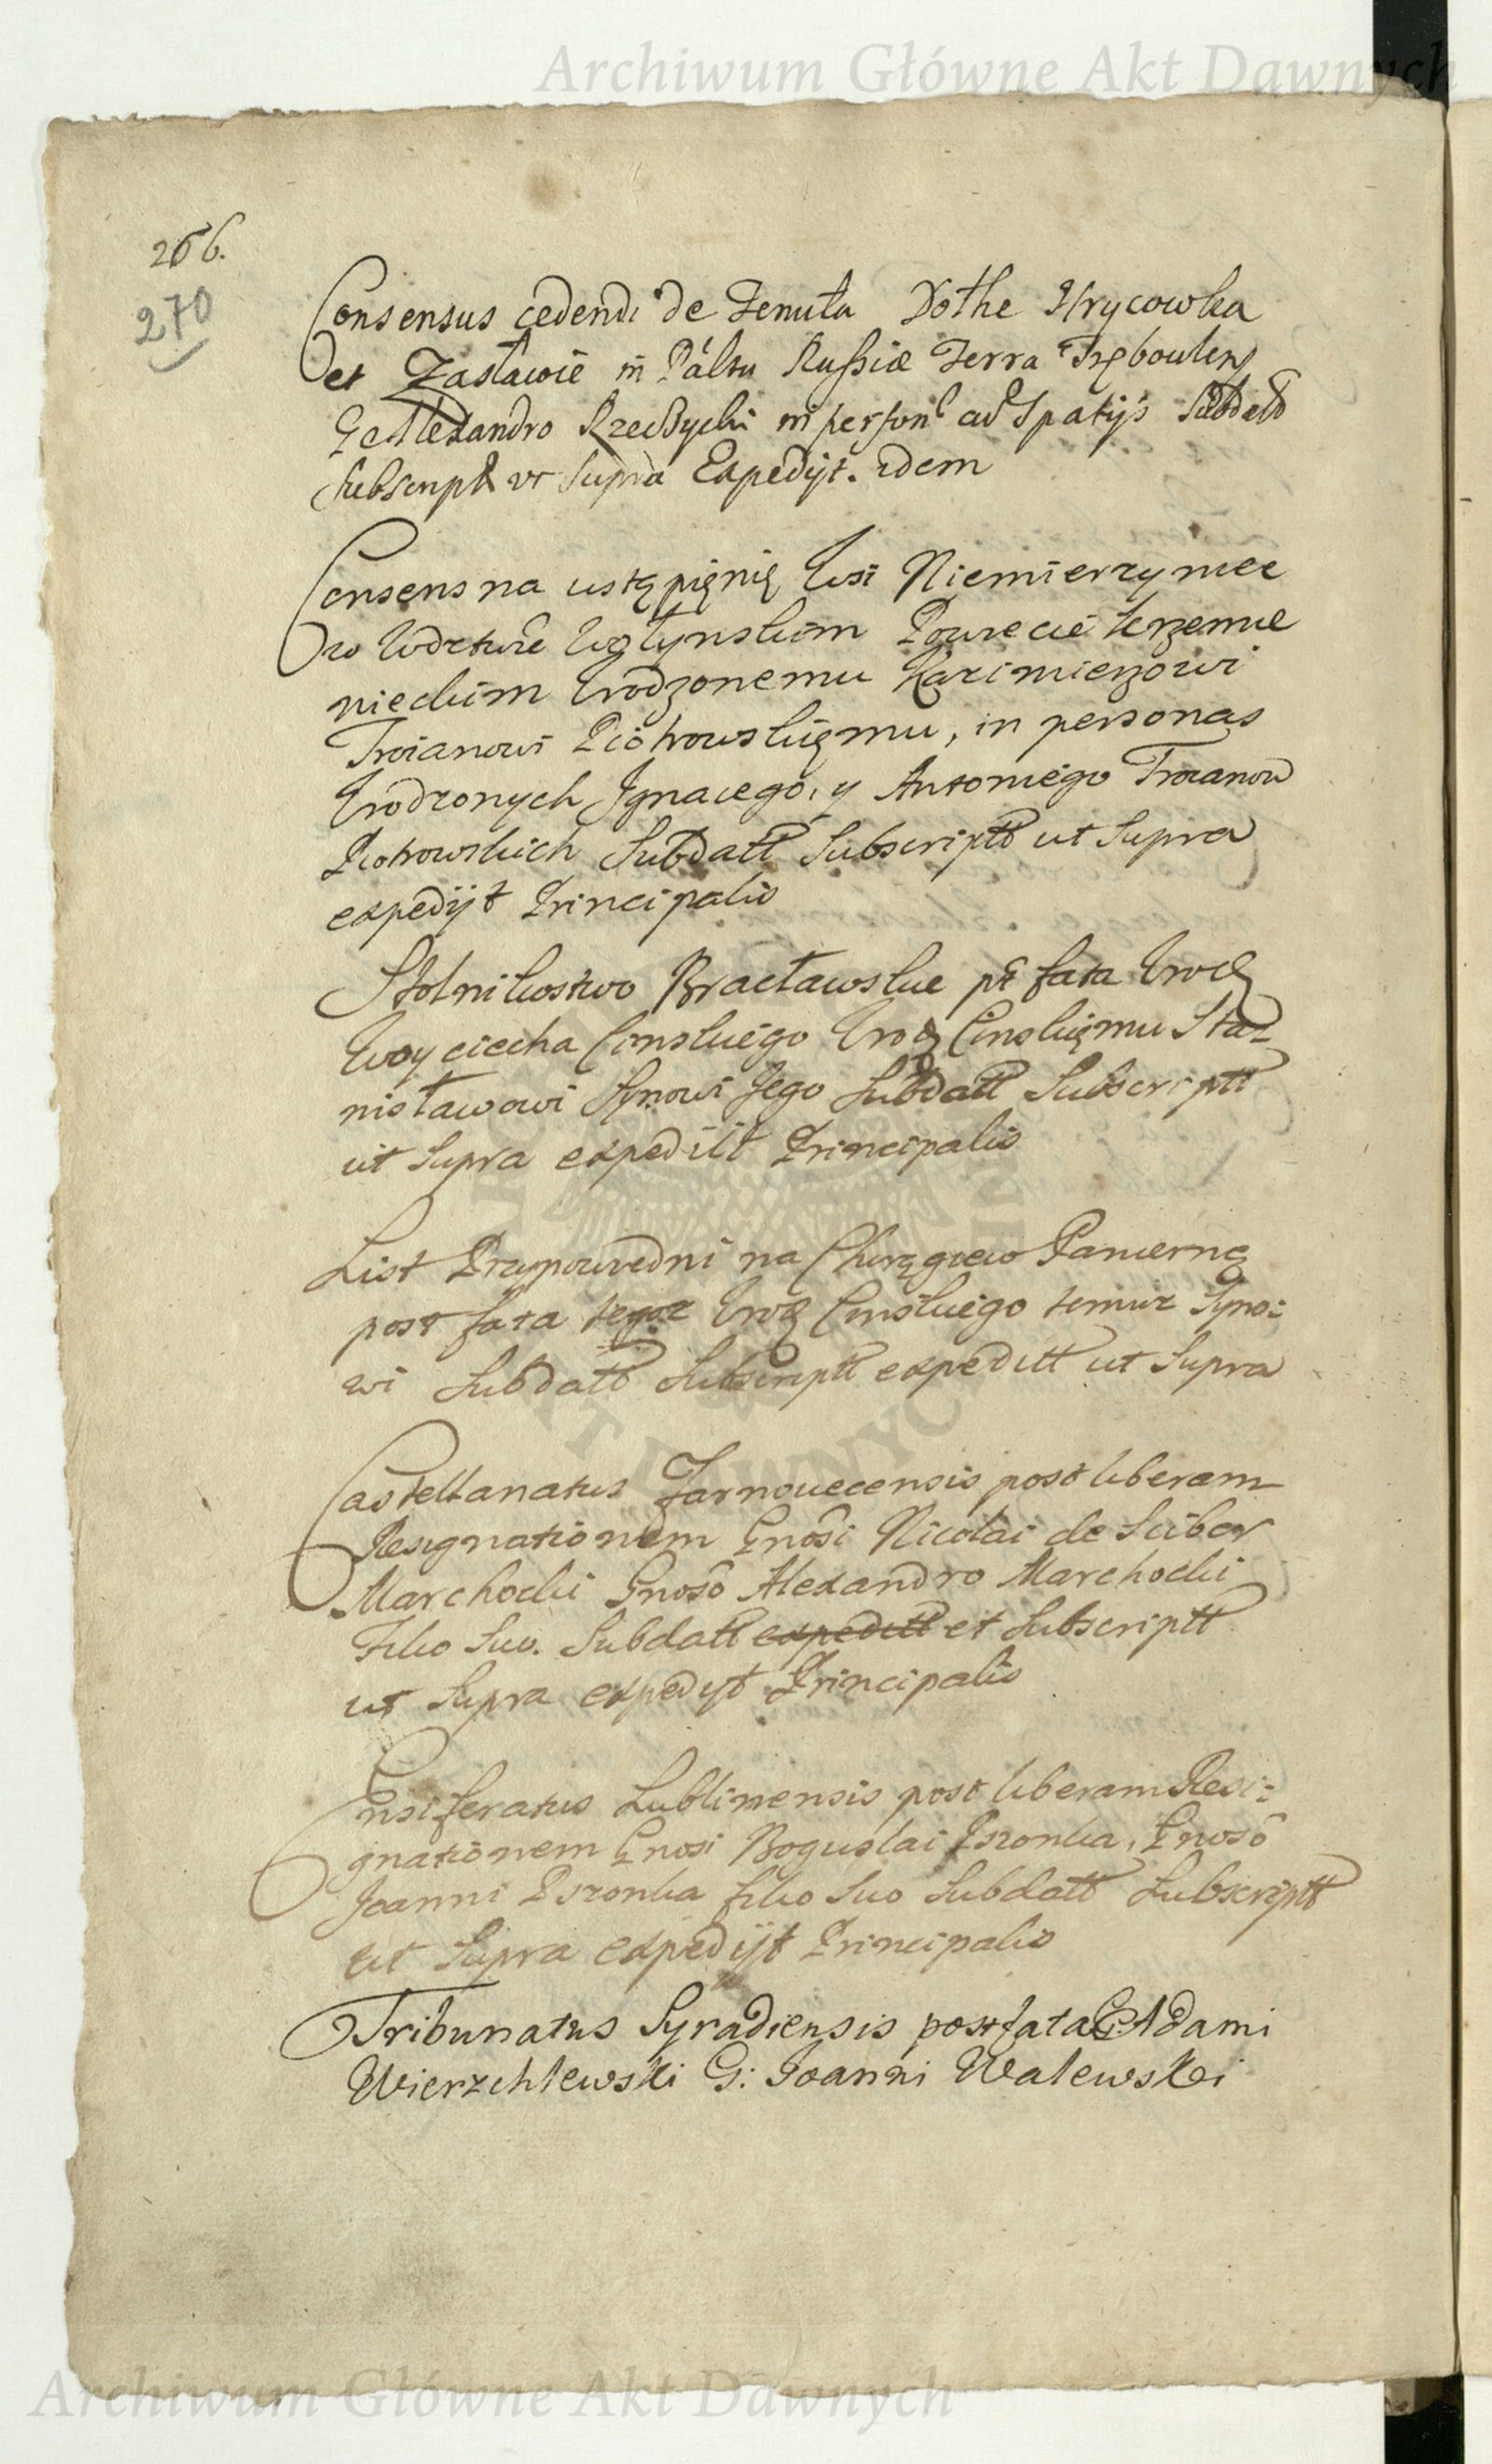 Archiwum Główne Akt Dawnych
266.
270
Consensus cedendi de Tenuta Dothe Hrycowka
et Zasławie in Pałtu Russiæ Terra Trębowlen
G Alexandro Rzeczycki in person ad Spatijs Subdatt
Subscript ut Supra Expedijt. idem
Consens na ustąpięnię Wsi Niemierzyniec
w Wdztwie Wołynskim Powiecie Krzemie
nieckim Urodzonemu Kazimierzowi
Troianowi Piotrowskięmu, in personas
Urodzonych Jgnacego, y Antoniego Troianow
Piotrowskich Subdatt Subscriptt ut Supra
expedijt Principalis
Stolnikostwo Bracławskie pt fata Urodz
Woyciecha Cinskiego Urodz Cinskięmu Sta=
nisławowi Synowi Jego Subdatt Subscriptt
ut Supra expediit Principalis
List Przypowiedni na Chorągiew Pancerną
post fata tegoz Urodz Cinskiego temuz Syno=
wi Subdatt Subscriptt expeditt ut Supra
Castellanatus Zarnovecensis post liberam
Resignationem Gnosi Nicolai de Scibor
Marchocki Gnoso Alexandro Marchocki
Filio Suo. Subdatt expeditt et Subscriptt
ut Supra expedyt Principalis
Ensiferatus Lublinensis post liberam Resi=
gnationem Gnosi Boguslai Pszonka, Gnoso
Joanni Pszonka filio Suo Subdatt Subscriptt
ut Supra expedijt Principalis
Tribunatus Syradiensis post fata G. Adami
Wierzchlewski G: Joanni Walewski
Archiwum Główne Akt Dawnych